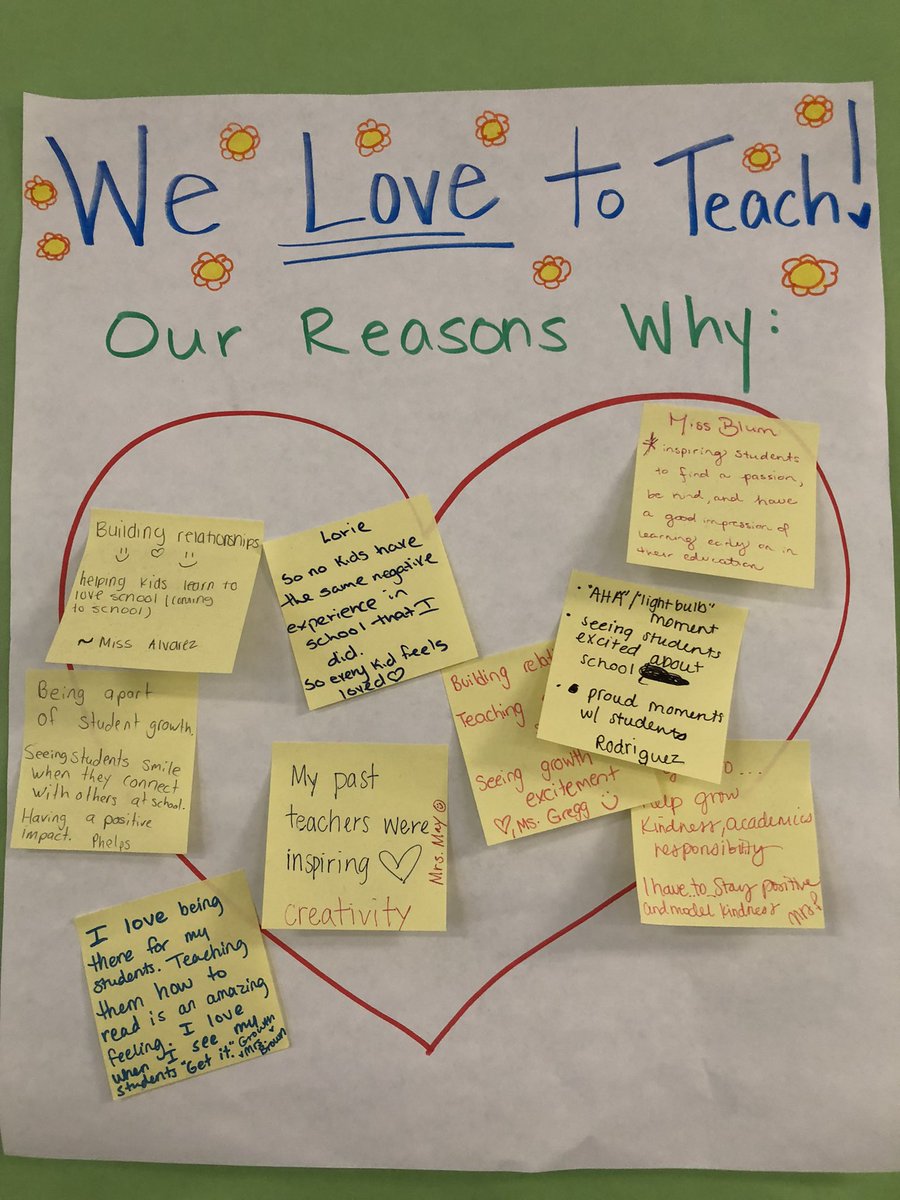 We Love to Teach!
Our Reasons Why:
Miss Blum
* inspiring students
to find a passion,
be kind, and have
a good impression of
learning early on in
their education
Building relationships
helping kids learn to
love school (coming
to school)
~ Miss Alvarez
Lorie
So no kids have
the same negative
experience in
school that I
did.
So every kid feels
loved
• "AHA"/"lightbulb"
moment
• seeing students
excited about
school
• proud moments
w/ students
Rodriguez
Building
Teaching
Seeing growth
excitement
Ms. Gregg
Being apart
of student growth.
Seeing students smile
when they connect
with others at school.
Having a positive
impact. Phelps
My past
teachers were
inspiring
creativity
Mrs. May
help grow
Kindness, academics
responsibility
I have to stay positive
and model kindness
I love being
there for my
students. Teaching
them how to
read is an amazing
feeling. I love
when I see my
students "Get it." Growth
Mrs. Brown